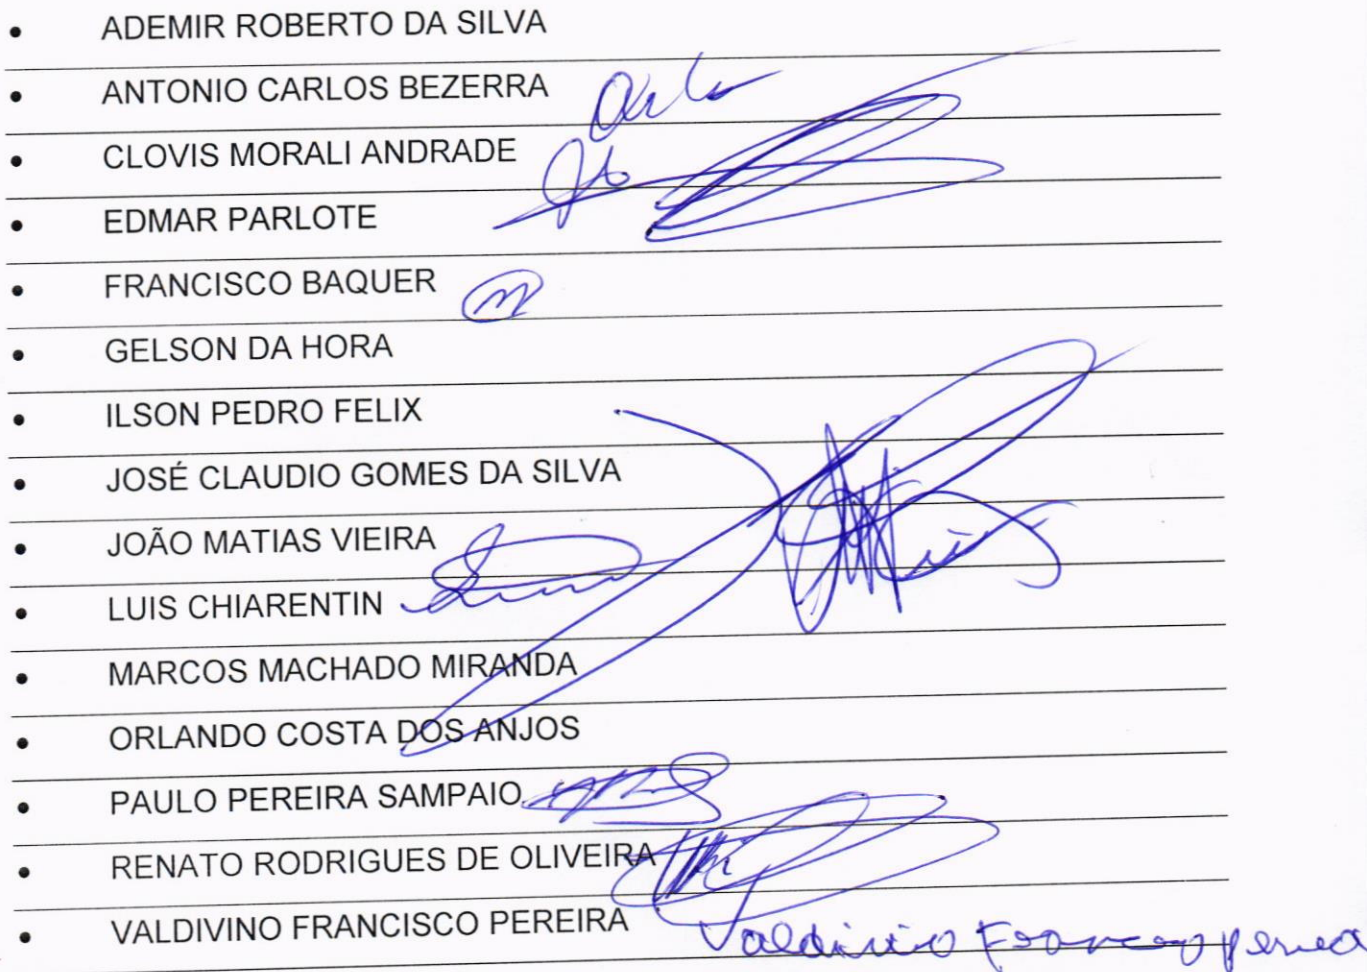 • ADEMIR ROBERTO DA SILVA
• ANTONIO CARLOS BEZERRA
• CLOVIS MORALI ANDRADE
• EDMAR PARLOTE
• FRANCISCO BAQUER
• GELSON DA HORA
• ILSON PEDRO FELIX
• JOSÉ CLAUDIO GOMES DA SILVA
• JOÃO MATIAS VIEIRA
• LUIS CHIARENTIN
• MARCOS MACHADO MIRANDA
• ORLANDO COSTA DOS ANJOS
• PAULO PEREIRA SAMPAIO
• RENATO RODRIGUES DE OLIVEIRA
• VALDIVINO FRANCISCO PEREIRA